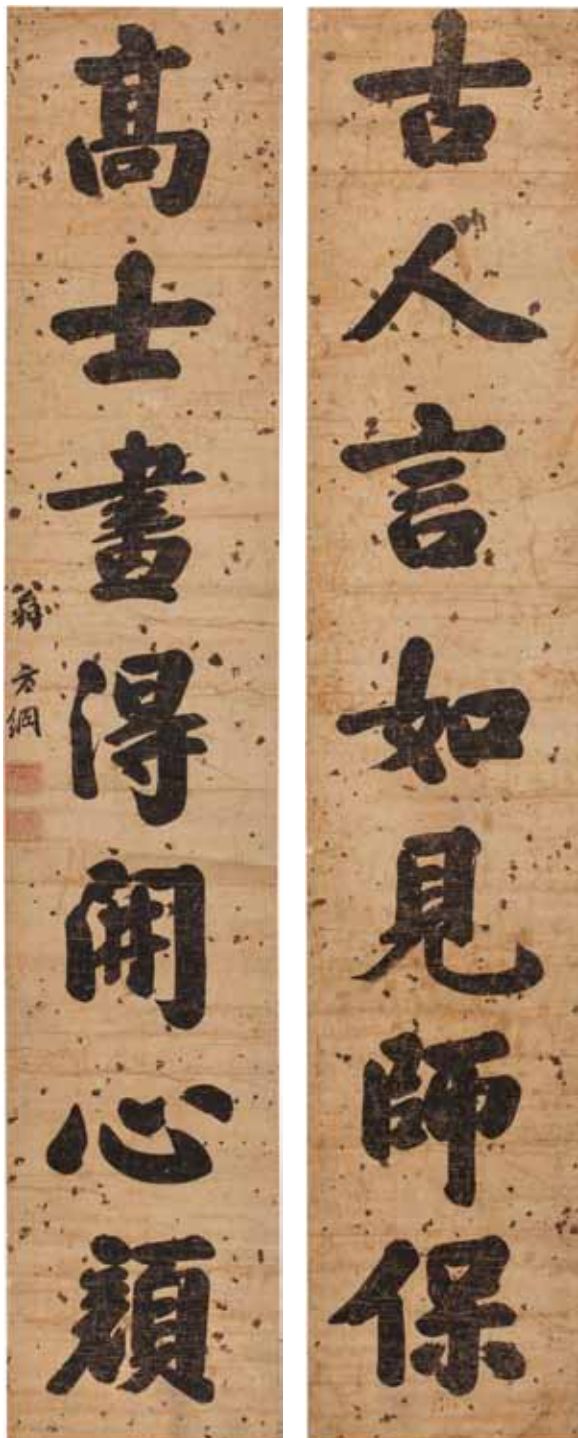 古人言如見師保
高士畫得開心顏
翁方綱